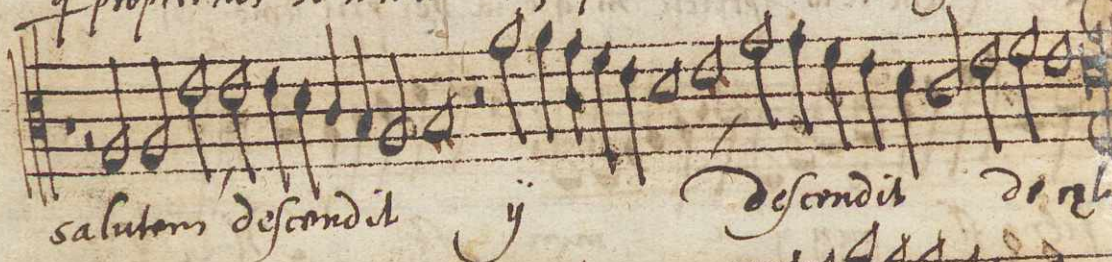 salutem descendit ij descendit de cęl